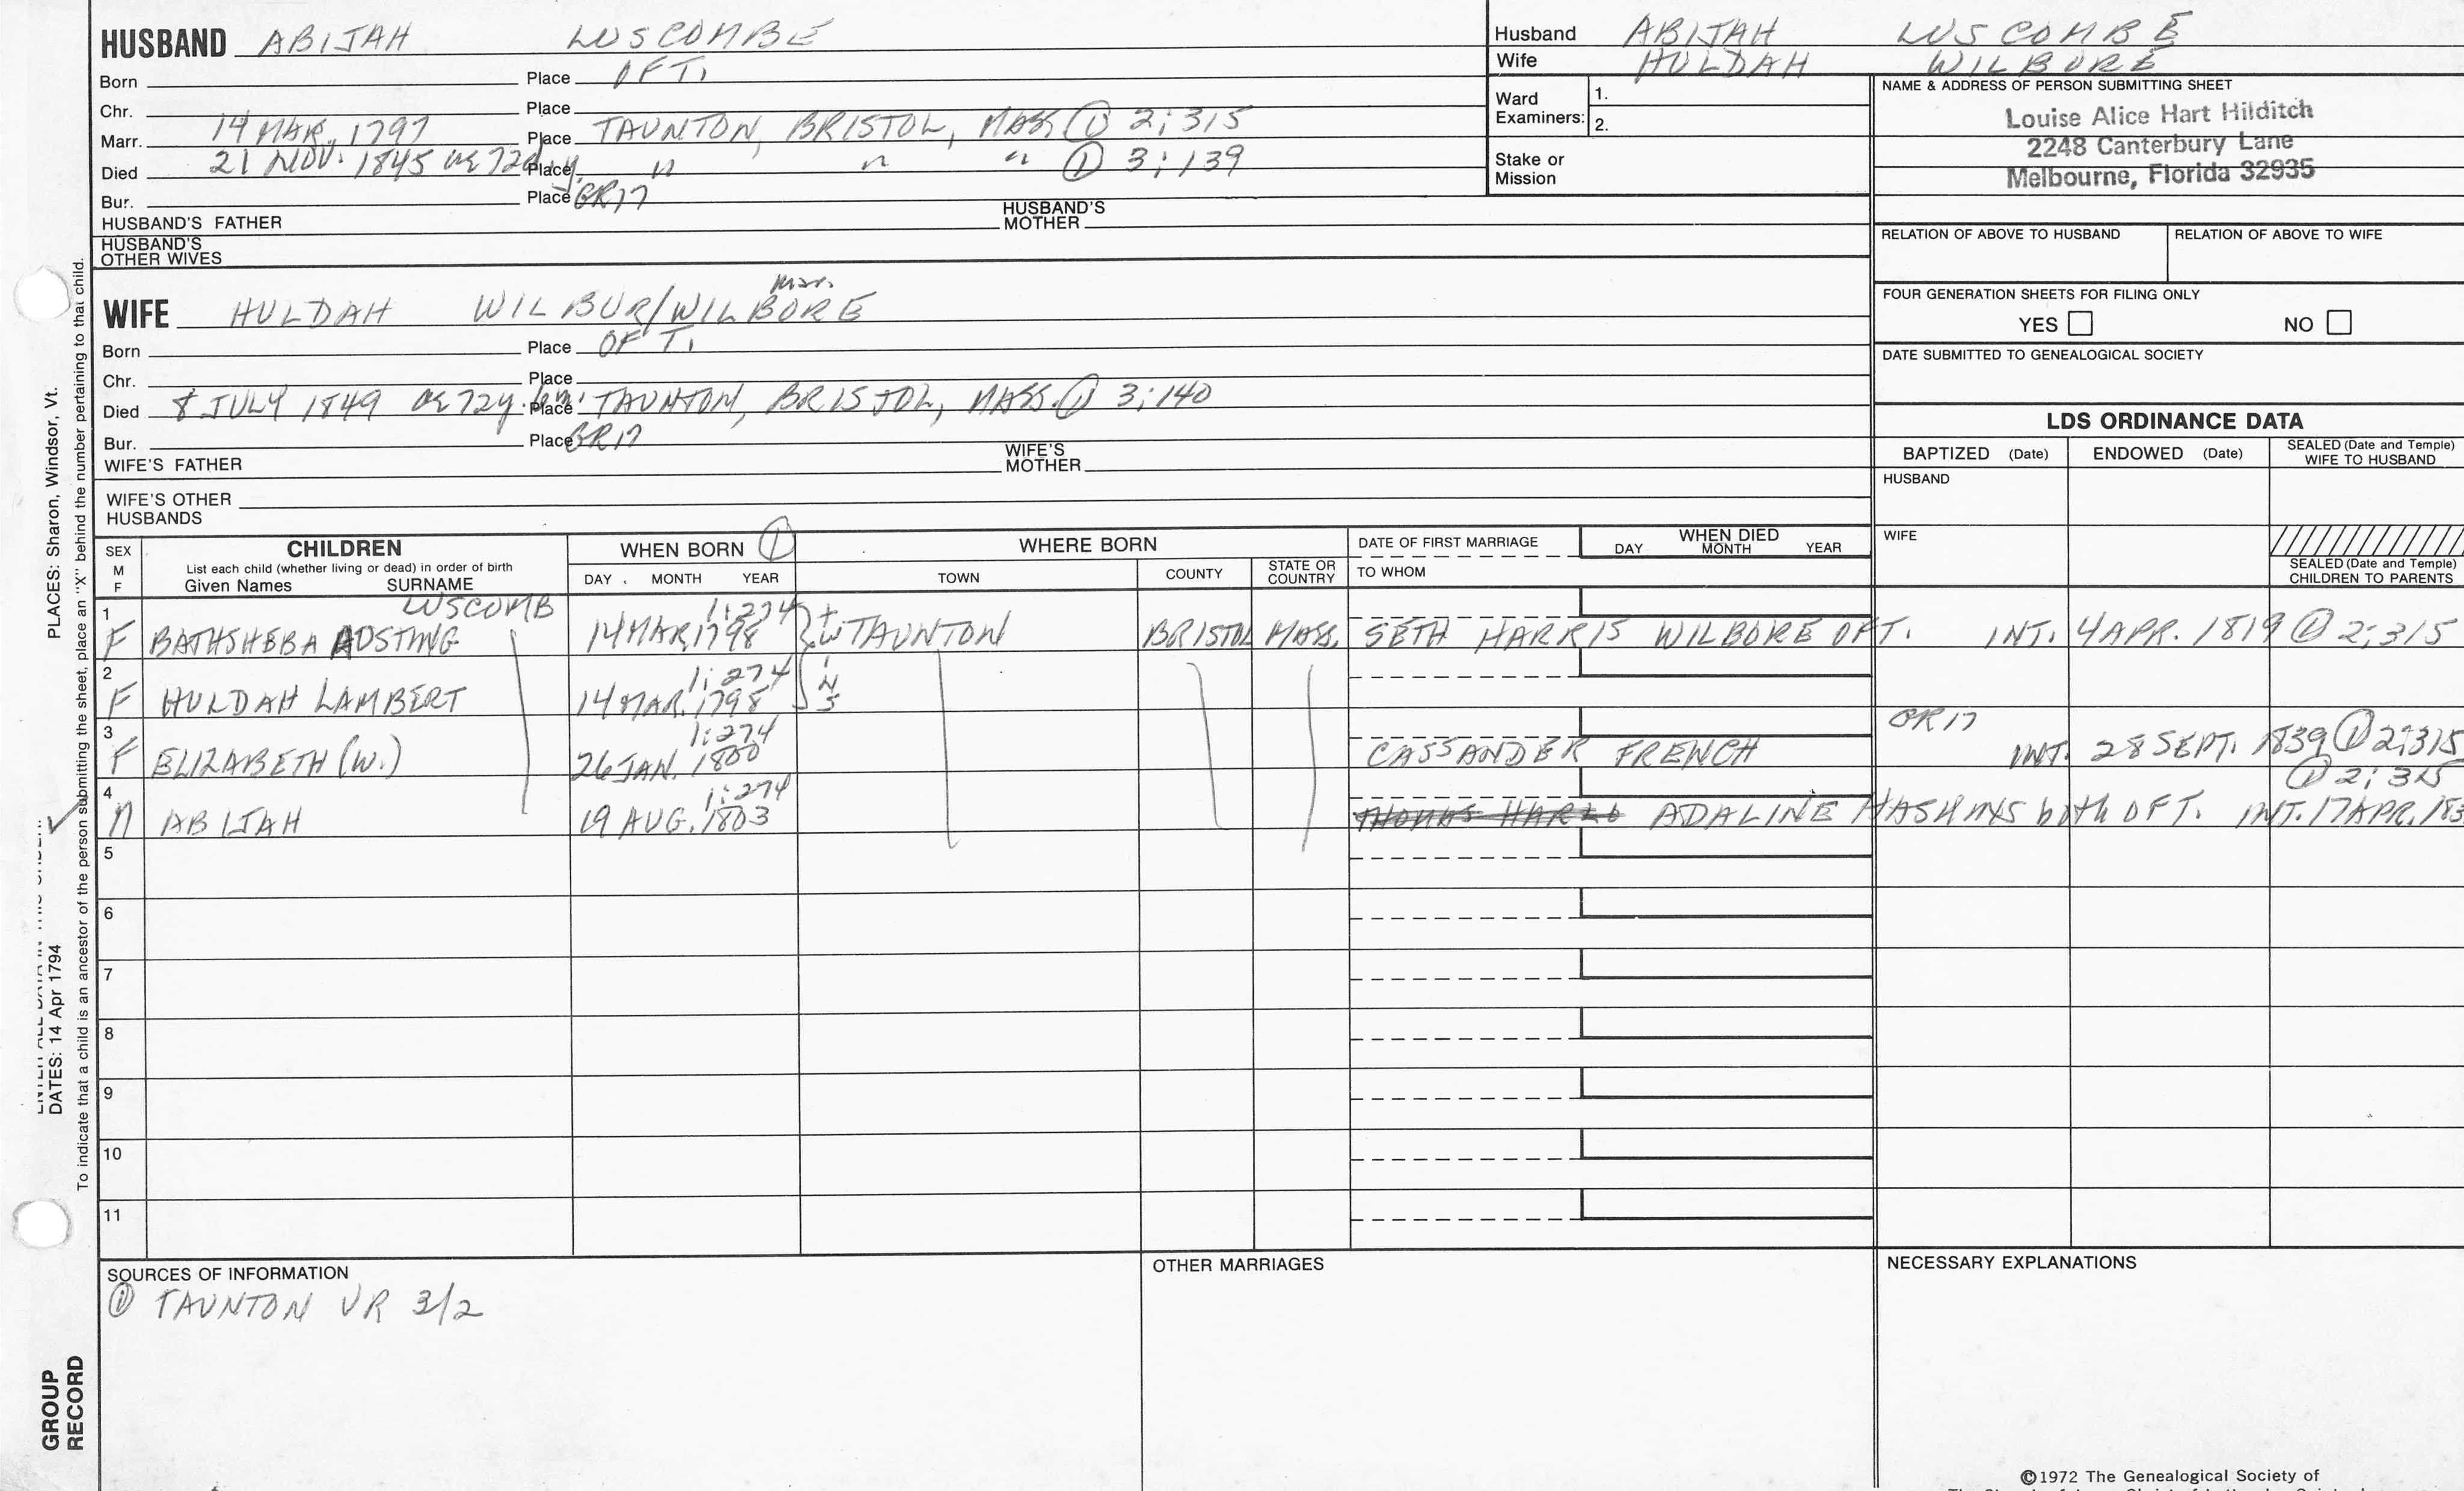 HUSBAND ABIJAH LUSCOMBE
Born Place OF T.
Chr. Place
Marr. 14 MAR. 1797 Place TAUNTON, BRISTOL, MASS ① 2:315
Died 21 NOV. 1845 ae 72 Place " " " ① 3:139
Bur. Place GR17
HUSBAND'S FATHER HUSBAND'S MOTHER
HUSBAND'S OTHER WIVES
Husband ABIJAH LUSCOMBE
Wife HULDAH WILBORE
Ward Examiners: 1.
2.
Stake or Mission
NAME & ADDRESS OF PERSON SUBMITTING SHEET
Louise Alice Hart Hilditch
2248 Canterbury Lane
Melbourne, Florida 32935
RELATION OF ABOVE TO HUSBAND RELATION OF ABOVE TO WIFE
FOUR GENERATION SHEETS FOR FILING ONLY
YES NO
DATE SUBMITTED TO GENEALOGICAL SOCIETY
mar.
WIFE HULDAH WILBUR/WILBORE
Born Place OF T.
Chr. Place
Died 8 JULY 1849 ae 72y. Place TAUNTON, BRISTOL, MASS. ① 3:140
Bur. Place GR17
WIFE'S FATHER WIFE'S MOTHER
WIFE'S OTHER HUSBANDS
LDS ORDINANCE DATA
BAPTIZED (Date) ENDOWED (Date) SEALED (Date and Temple) WIFE TO HUSBAND
HUSBAND
WIFE
SEALED (Date and Temple) CHILDREN TO PARENTS
SEX M F
CHILDREN
List each child (whether living or dead) in order of birth
Given Names SURNAME
WHEN BORN ①
DAY MONTH YEAR
WHERE BORN
TOWN COUNTY STATE OR COUNTRY
DATE OF FIRST MARRIAGE
TO WHOM
WHEN DIED
DAY MONTH YEAR
LUSCOMB 1:274
1 F BATHSHEBA 14 MAR 1798 TAUNTON BRISTOL MASS. SETH HARRIS WILBORE OF T. INT. 4 APR. 1819 ① 2:315
1:274
2 F HULDAH LAMBERT 14 MAR. 1798
1:274 GR17
3 F ELIZABETH (W.) 26 JAN. 1800 CASSANDER FRENCH INT. 28 SEPT. 1839 ① 2:315
1:274 ① 2:315
4 M ABIJAH 19 AUG. 1803 ADALINE HASKINS both OF T. INT. 17 APR. 183
5
6
7
8
9
10
11
SOURCES OF INFORMATION
① TAUNTON VR 3/2
OTHER MARRIAGES
NECESSARY EXPLANATIONS
©1972 The Genealogical Society of
PLACES: Sharon, Windsor, Vt.
DATES: 14 Apr 1794
To indicate that a child is an ancestor of the person submitting the sheet, place an "X" behind the number pertaining to that child.
GROUP
RECORD